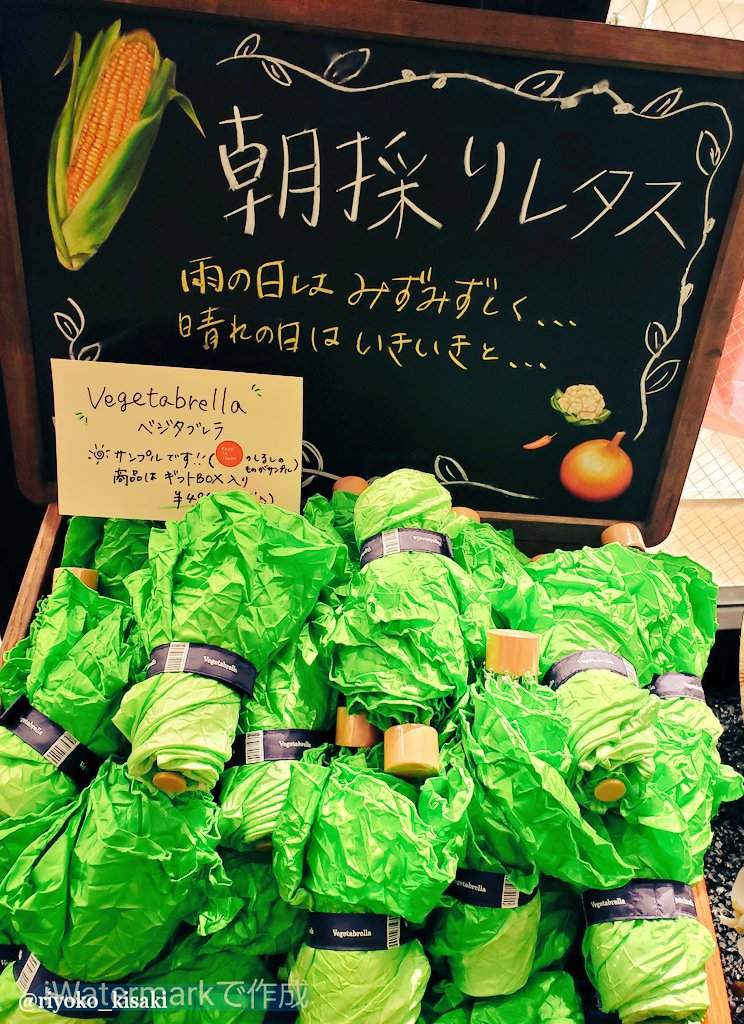 朝採りレタス
雨の日はみずみずしく...
晴れの日はいきいきと...
Vegetabrella
ベジタブレラ
サンプルです!!(
のしるしの
ものがサンプル)
商品は ギフトBOX入り
Vegetabrella
Vegetabrella
Vegetabrella
Vegetabrella
Vegetabrella
iWatermarkで作成
@riyoko_kisaki